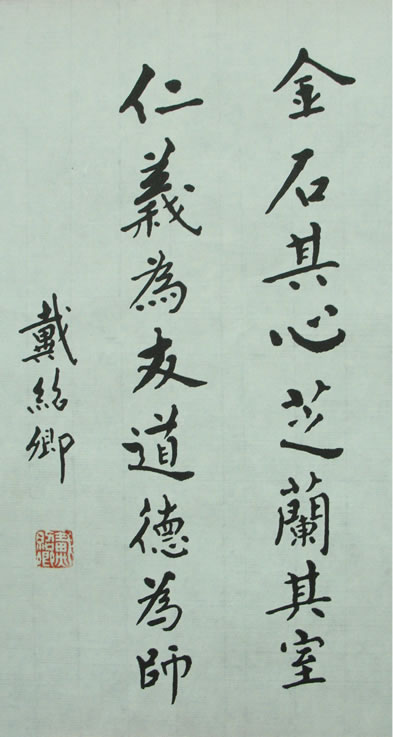 金石其心芝蘭其室
仁義為友道德為師
戴紹卿
戴紹卿